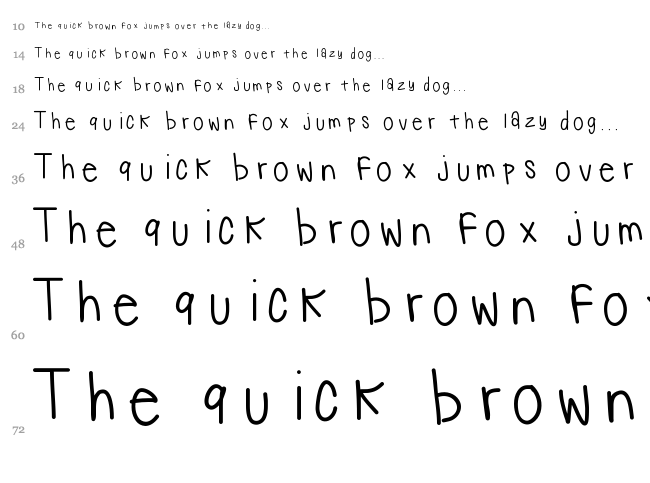 10 The quick brown Fox jumps over the lazy dog...
14 The quick brown Fox jumps over the lazy dog...
18 The quick brown Fox jumps over the lazy dog...
24 The quick brown Fox jumps over the lazy dog...
36 The quick brown Fox jumps over
48 The quick brown Fox jum
60 The quick brown Fo
72 The quick brown